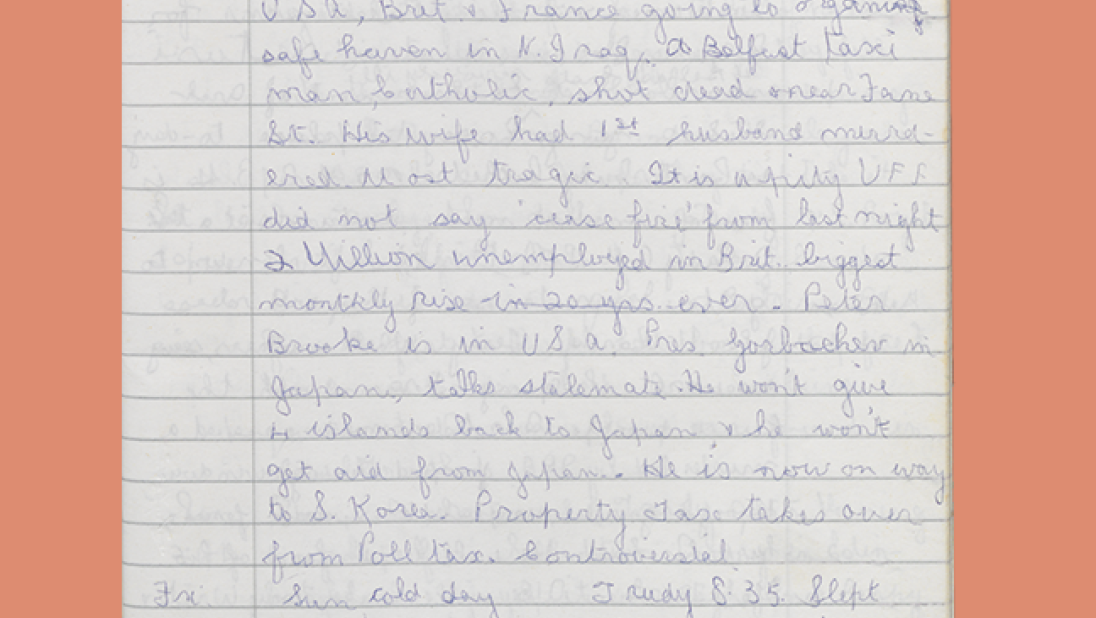 U S A, Brit. & France going to organise
safe haven in N. Iraq. A Belfast taxi
man, Catholic, shot dead near Fane
St. His wife had 1st husband murd-
ered. Most tragic. It is a pity UFF
did not say 'cease fire' from last night
2 Million unemployed in Brit. biggest
monthly rise in 20 yrs. ever. Peter
Brooke is in U S A. Pres. Gorbachev in
Japan, talks stalemate. He won't give
4 islands back to Japan & he won't
get aid from Japan. He is now on way
to S. Korea. Property Tax takes over
from Poll tax. Controversial.
Fri. Sun cold day Trudy 8.35. Slept